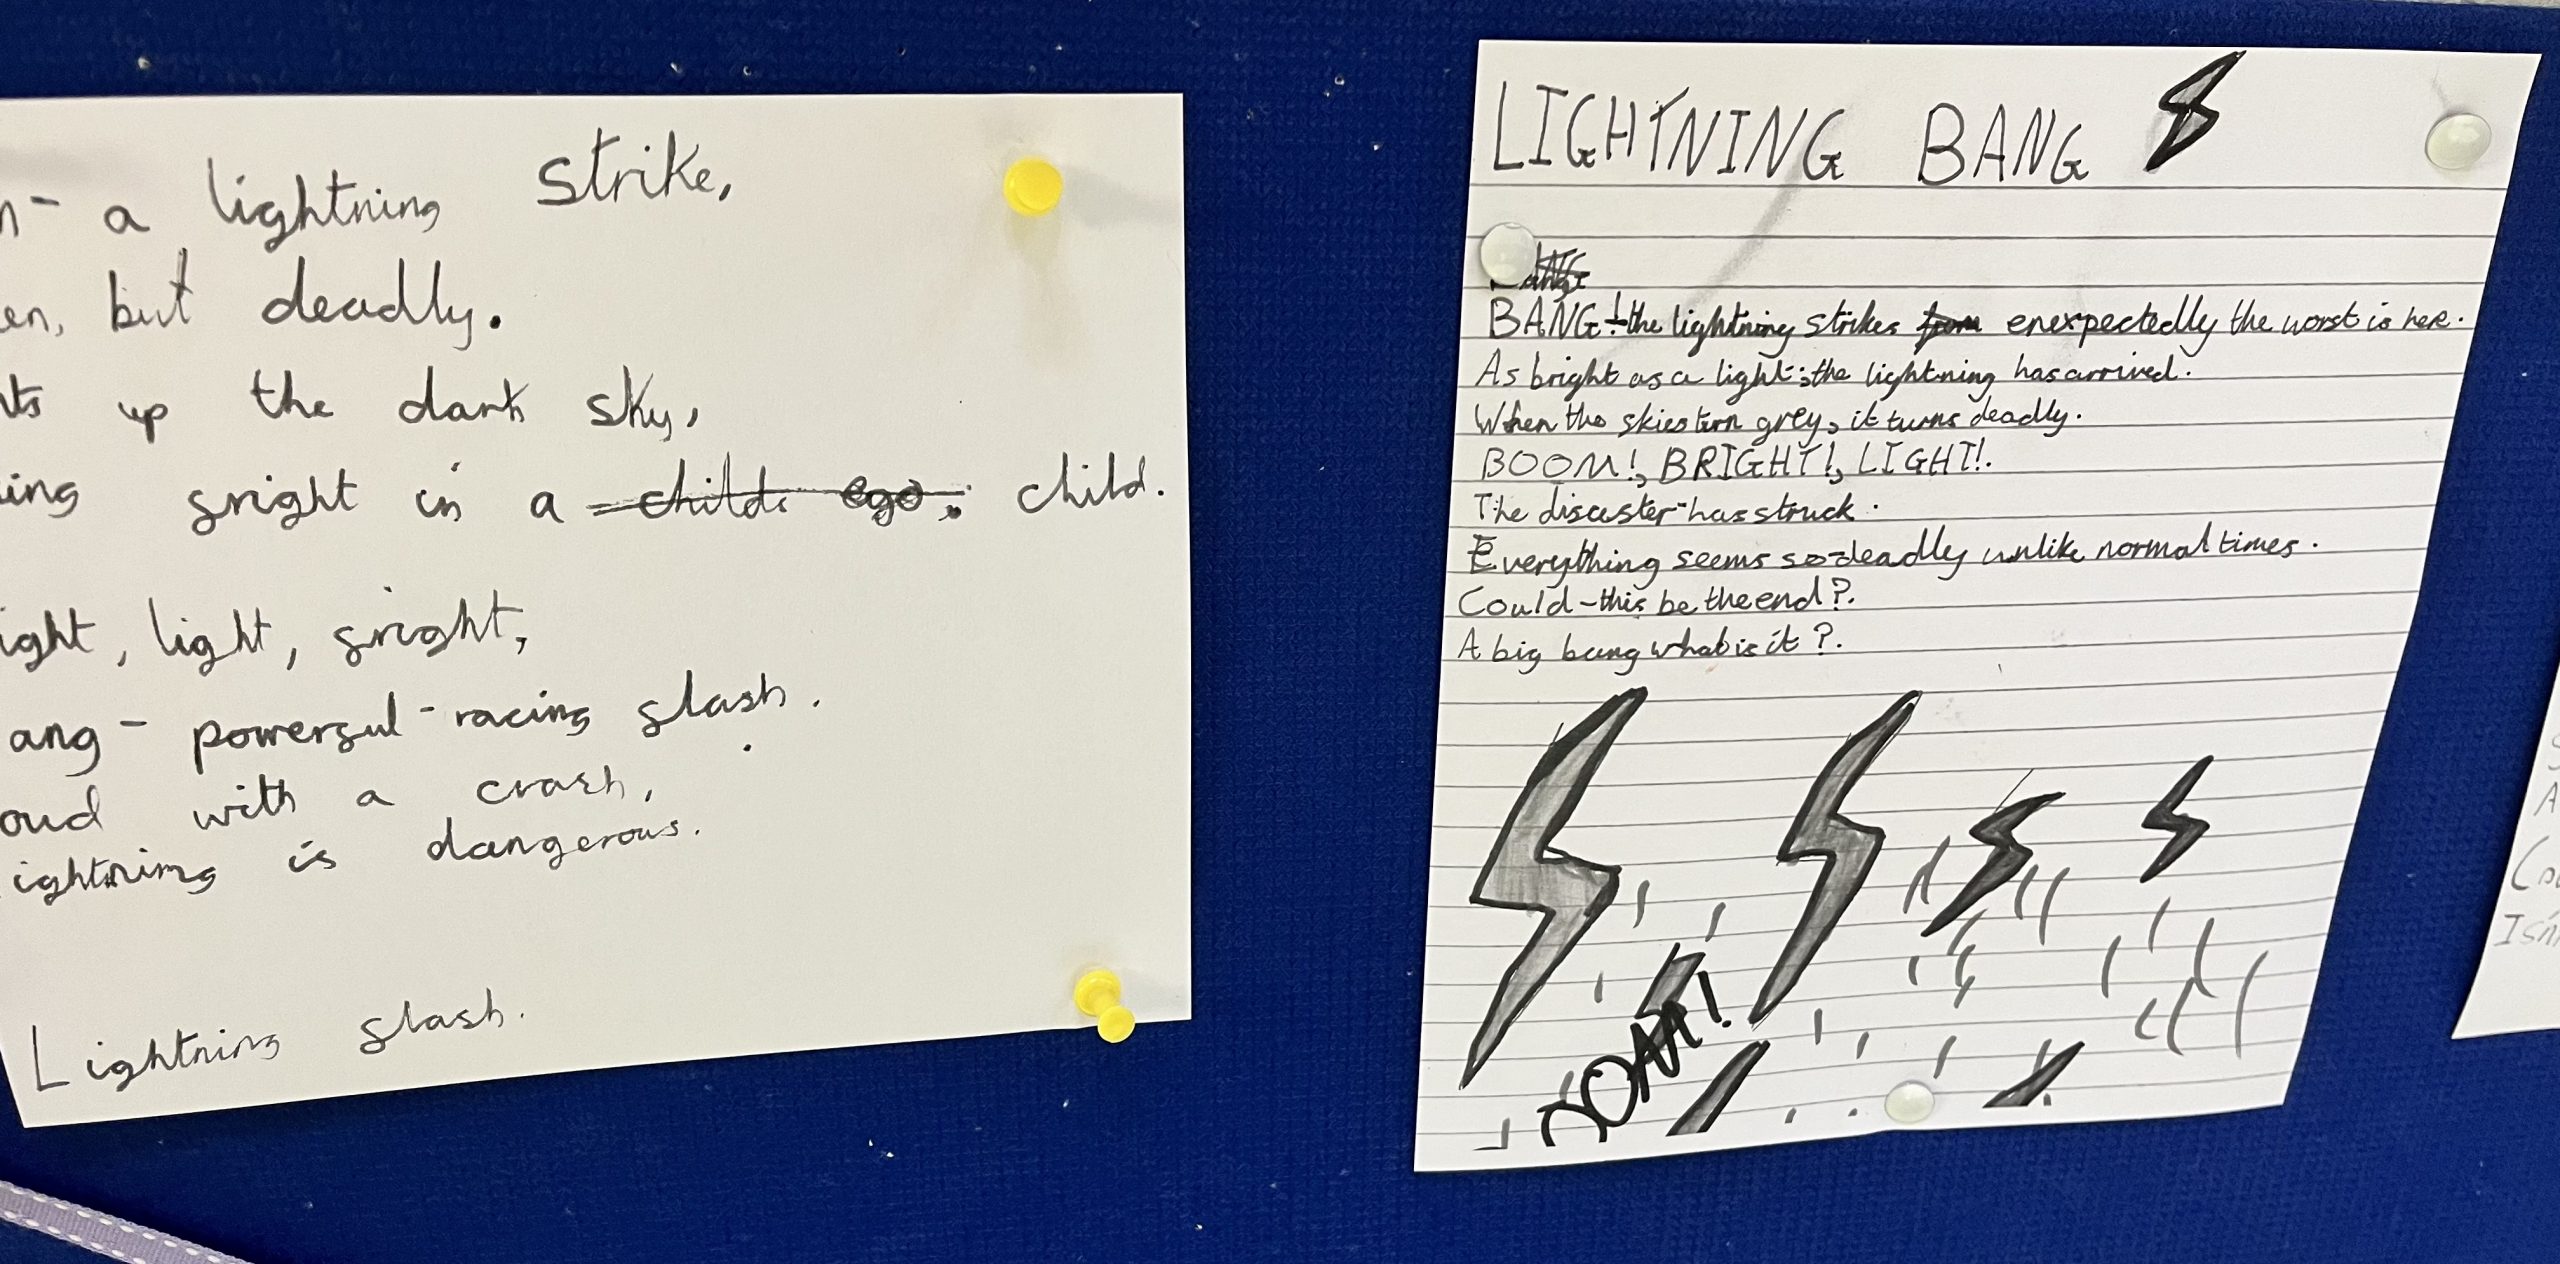 a lightning strike,
but deadly.
up the dark sky,
sright in a child ego. child.
light, sright,
powersul-racing slash.
with a crash,
is dangerous.
Lightning slash.
LIGHTNING BANG
BANG! the lightning strikes from enexpectedly the worst is here.
As bright as a light; the lightning has arrived.
When the skies turn grey, it turns deadly.
BOOM!, BRIGHT!, LIGHT!.
The disaster has struck.
Everything seems so deadly unlike normal times.
Could this be the end?.
A big bang what is it?.